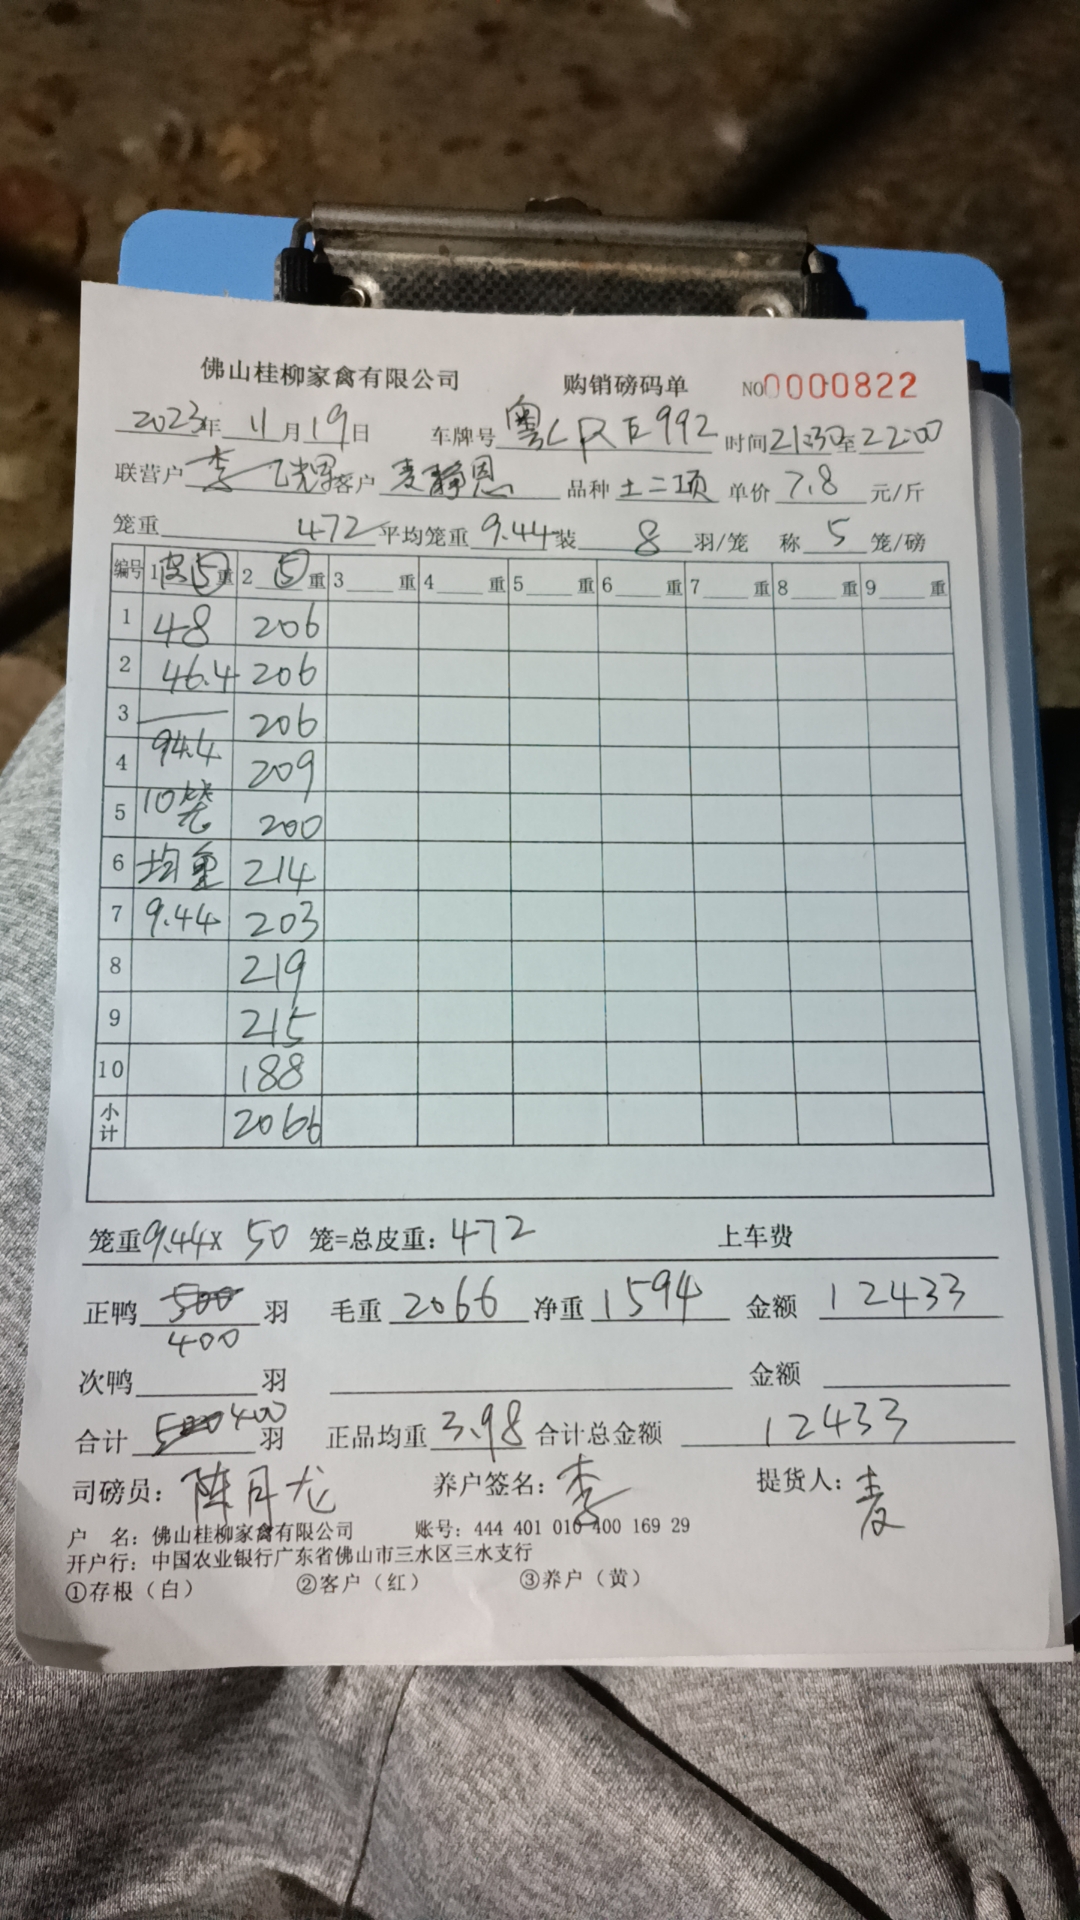 佛山桂柳家禽有限公司 购销磅码单 NO0000822
2023年 11月19日 车牌号 粤LRE992 时间21:30至22:00
联营户 李 客户 麦静恩 品种 土二项 单价 7.8 元/斤
笼重 472 平均笼重 9.44 装 8 羽/笼 称 5 笼/磅
编号 1皮⑤重 2 ⑤重 3 重 4 重 5 重 6 重 7 重 8 重 9 重
1 48 206
2 46.4 206
3 206
4 94.4 209
5 10笼 200
6 均重 214
7 9.44 203
8 219
9 215
10 188
小计 2066
笼重9.44x 50 笼=总皮重: 472 上车费
正鸭 500 羽 毛重 2066 净重 1594 金额 12433
400
次鸭 羽 金额
合计 500 400 羽 正品均重 3.98 合计总金额 12433
司磅员: 陈月龙 养户签名: 李 提货人: 麦
户 名: 佛山桂柳家禽有限公司 账号: 444 401 010 400 169 29
开户行: 中国农业银行广东省佛山市三水区三水支行
①存根（白） ②客户（红） ③养户（黄）